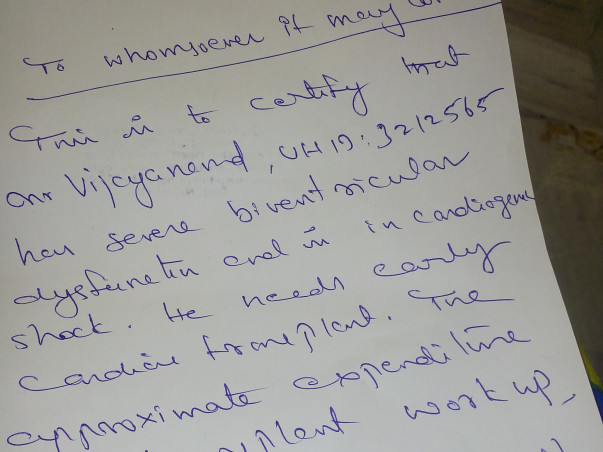 To whomsoever it may
This is to certify that
Mr Vijayanand, UHID: 3212565
has severe biventricular
dysfunction and is in cardiogenic
shock. He needs early
cardiac transplant. The
approximate expenditure
plant work up,